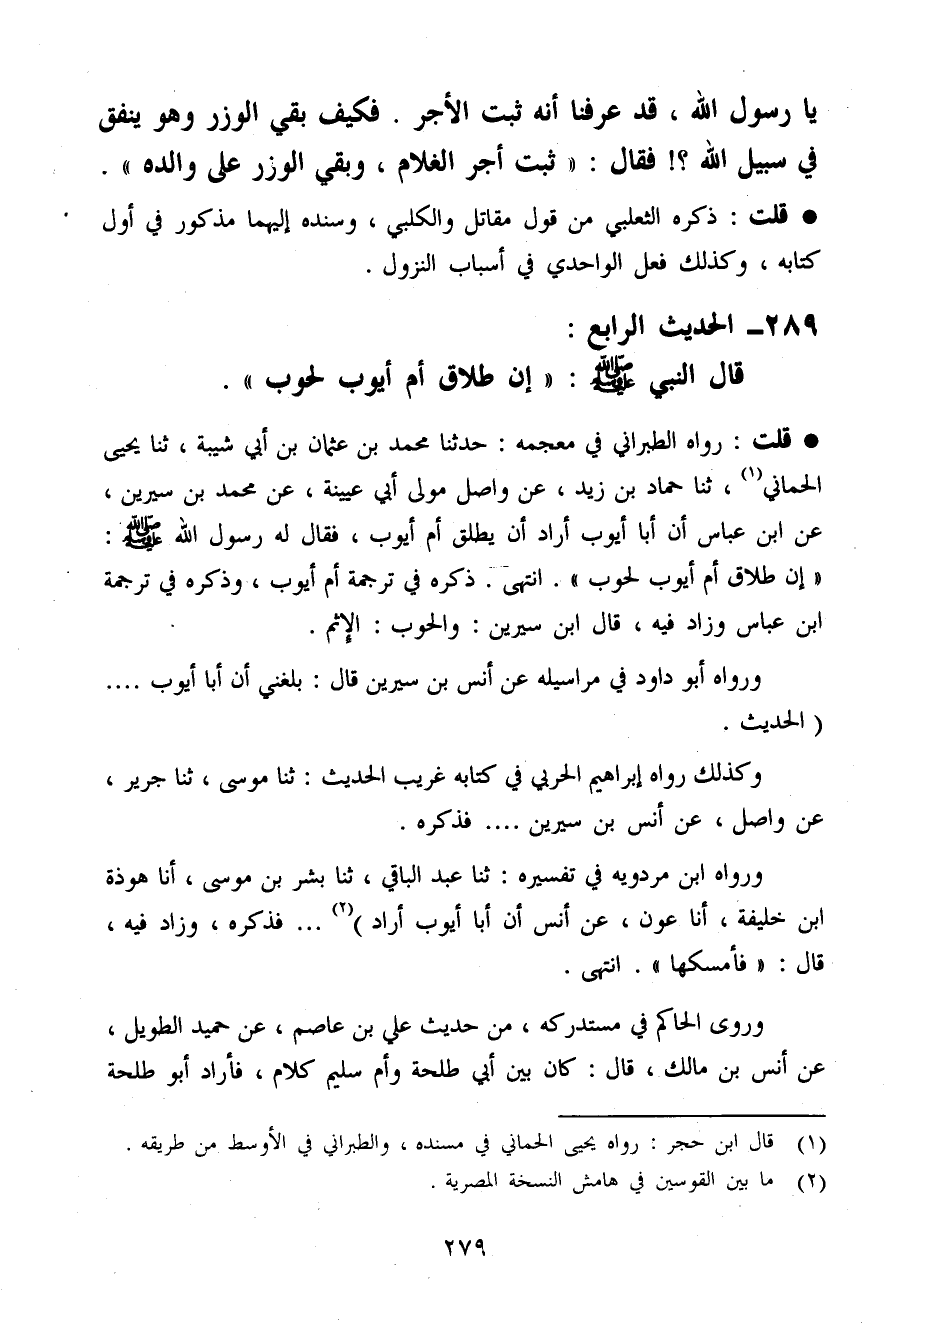 يا رسول الله ، قد عرفنا أنه ثبت الأجر . فكيف بقي الوزر وهو ينفق
في سبيل الله ؟! فقال : « ثبت أجر الغلام ، وبقي الوزر على والده » .
● قلت : ذكره الثعلبي من قول مقاتل والكلبي ، وسنده إليهما مذكور في أول
كتابه ، وكذلك فعل الواحدي في أسباب النزول .
٢٨٩ـ الحديث الرابع :
قال النبي ﷺ : « إن طلاق أم أيوب لحوب » .
● قلت : رواه الطبراني في معجمه : حدثنا محمد بن عثمان بن أبي شيبة ، ثنا يحيى
الحماني(١) ، ثنا حماد بن زيد ، عن واصل مولى أبي عيينة ، عن محمد بن سيرين ،
عن ابن عباس أن أبا أيوب أراد أن يطلق أم أيوب ، فقال له رسول الله ﷺ :
« إن طلاق أم أيوب لحوب » . انتهى . ذكره في ترجمة أم أيوب ، وذكره في ترجمة
ابن عباس وزاد فيه ، قال ابن سيرين : والحوب : الإثم .
ورواه أبو داود في مراسيله عن أنس بن سيرين قال : بلغني أن أبا أيوب ....
( الحديث .
وكذلك رواه إبراهيم الحربي في كتابه غريب الحديث : ثنا موسى ، ثنا جرير ،
عن واصل ، عن أنس بن سيرين .... فذكره .
ورواه ابن مردويه في تفسيره : ثنا عبد الباقي ، ثنا بشر بن موسى ، أنا هوذة
ابن خليفة ، أنا عون ، عن أنس أن أبا أيوب أراد )(٢) ... فذكره ، وزاد فيه ،
قال : « فأمسكها » . انتهى .
وروى الحاكم في مستدركه ، من حديث علي بن عاصم ، عن حميد الطويل ،
عن أنس بن مالك ، قال : كان بين أبي طلحة وأم سليم كلام ، فأراد أبو طلحة
(١) قال ابن حجر : رواه يحيى الحماني في مسنده ، والطبراني في الأوسط من طريقه .
(٢) ما بين القوسين في هامش النسخة المصرية .
٢٧٩